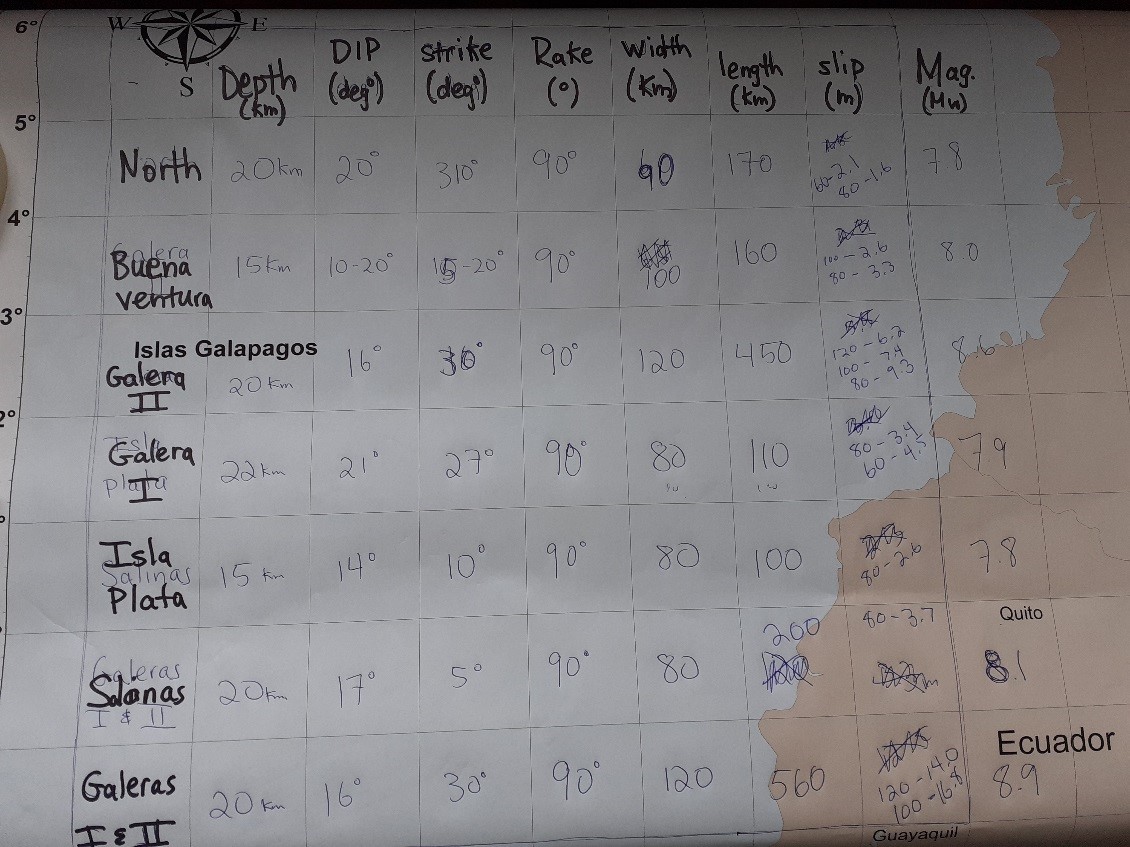 6°
W E
S
Depth (km) DIP (deg°) strike (deg°) Rake (°) Width (Km) length (km) slip (m) Mag. (Mw)
5°
North 20km 20° 310° 90° 60 170 60-2.1 80-1.6 7.8
4°
Buena ventura 15Km 10-20° 15-20° 90° 100 160 100-2.6 80-3.3 8.0
3°
Islas Galapagos
Galera II 20Km 16° 30° 90° 120 450 120-6.2 100-7.4 80-9.3 8.6
2°
Galera I 22km 21° 27° 90° 80 110 80-3.4 60-4.5 7.9
Isla Plata 15 km 14° 10° 90° 80 100 80-2.6 7.8
Salinas
Quito
Galeras I & II 20Km 17° 5° 90° 80 200 80-3.7 8.1
Ecuador
Galeras I & II 20km 16° 30° 90° 120 560 120-14.0 100-16.8 8.9
Guayaquil